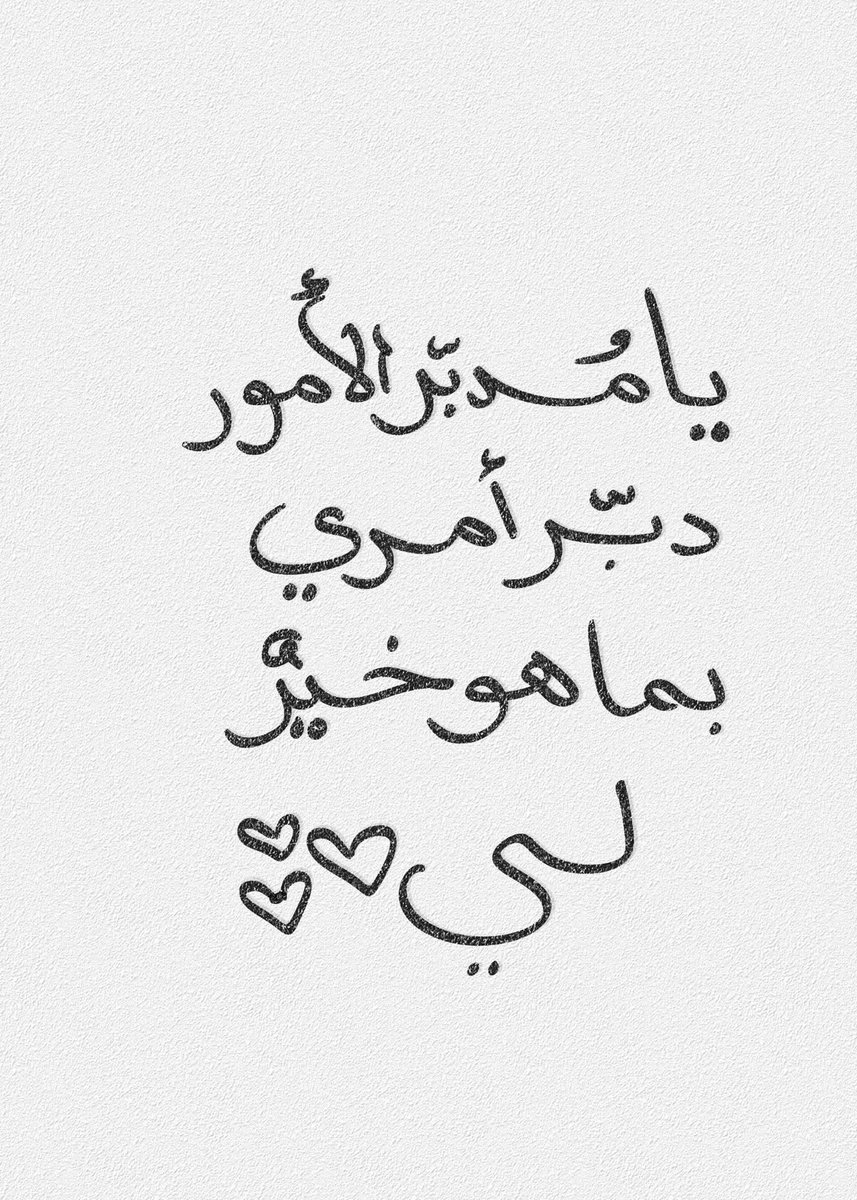 يا مُدبّر الأمور
دبّر أمري
بما هو خيرٌ
لي